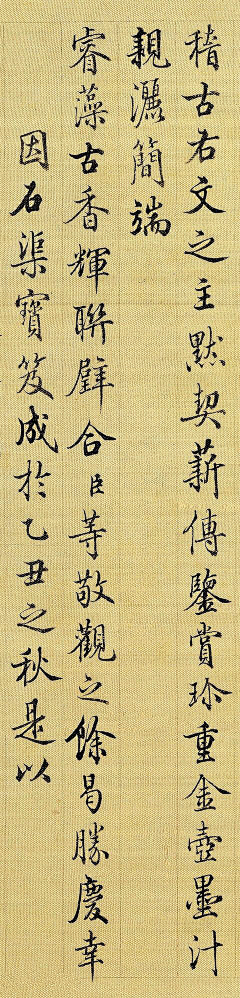 稽古右文之主默契薪傳鑒賞珍重金壺墨汁
親灑簡端
睿藻古香輝聯璧合臣等敬觀之餘曷勝慶幸
因石渠寶笈成於乙丑之秋是以